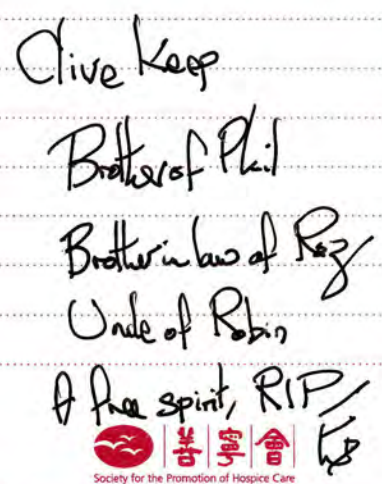 Clive Keep
Brother of Phil
Brother in law of Roz
Uncle of Robin
A free spirit, RIP
善寧會
Society for the Promotion of Hospice Care